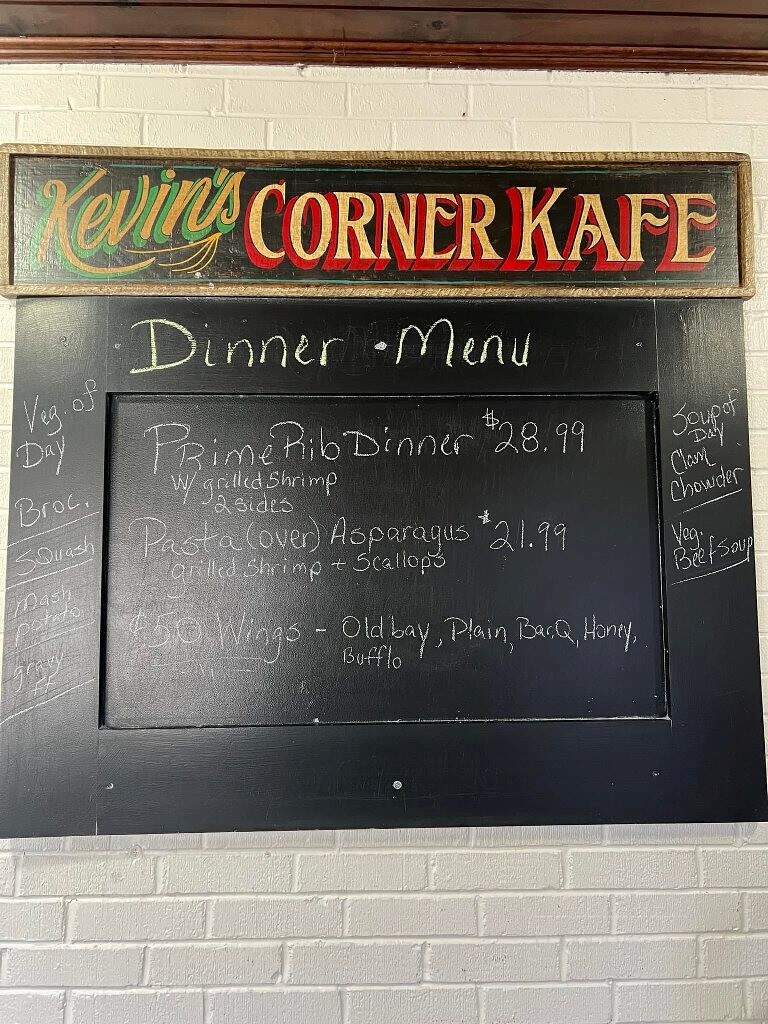 Kevin's CORNER KAFE
Dinner • Menu
Veg. of
Day
Broc.
Squash
mash
potato
gravy
FF
Prime Rib Dinner $28.99
W/ grilled Shrimp
2 sides
Pasta (over) Asparagus $21.99
grilled Shrimp + Scallops
$.50 Wings - Old bay, Plain, Bar.Q, Honey,
Bufflo
Soup of
Day
Clam
Chowder
Veg.
Beef Soup